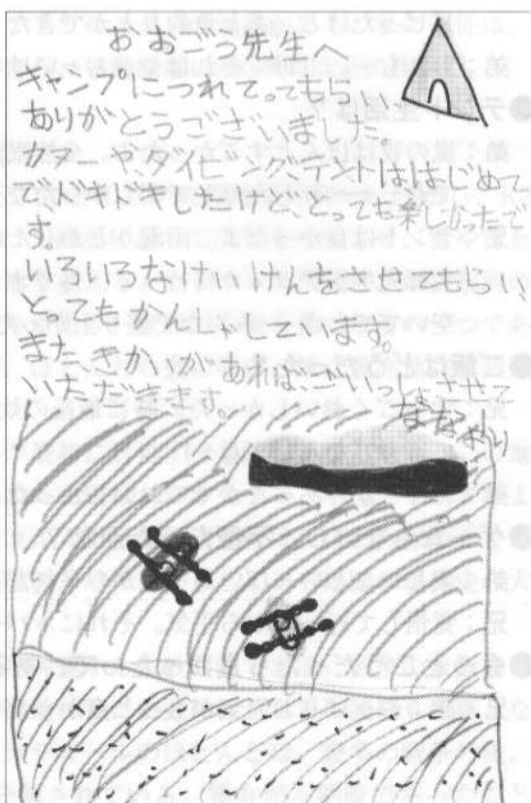 おおごう先生へ
キャンプにつれてってもらい
ありがとうございました。
カヌーや、ダイビング、テントははじめて
でドキドキしたけど、とっても楽しかったで
す。
いろいろなけいけんをさせてもらい
とってもかんしゃしています。
またきかいがあれば、ごいっしょさせて
いただきます。